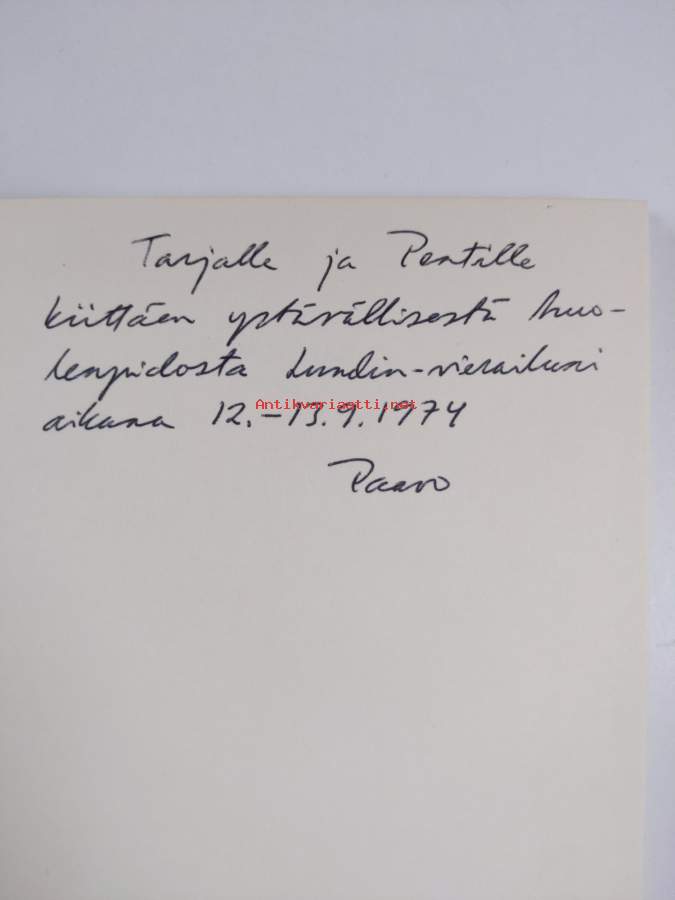 Tarjalle ja Pentille
kiittäen ystävällisestä huo-
lenpidosta Lundin-vierailuni
Antikvariaatti.net
aikana 12.-13.9.1974
Paavo